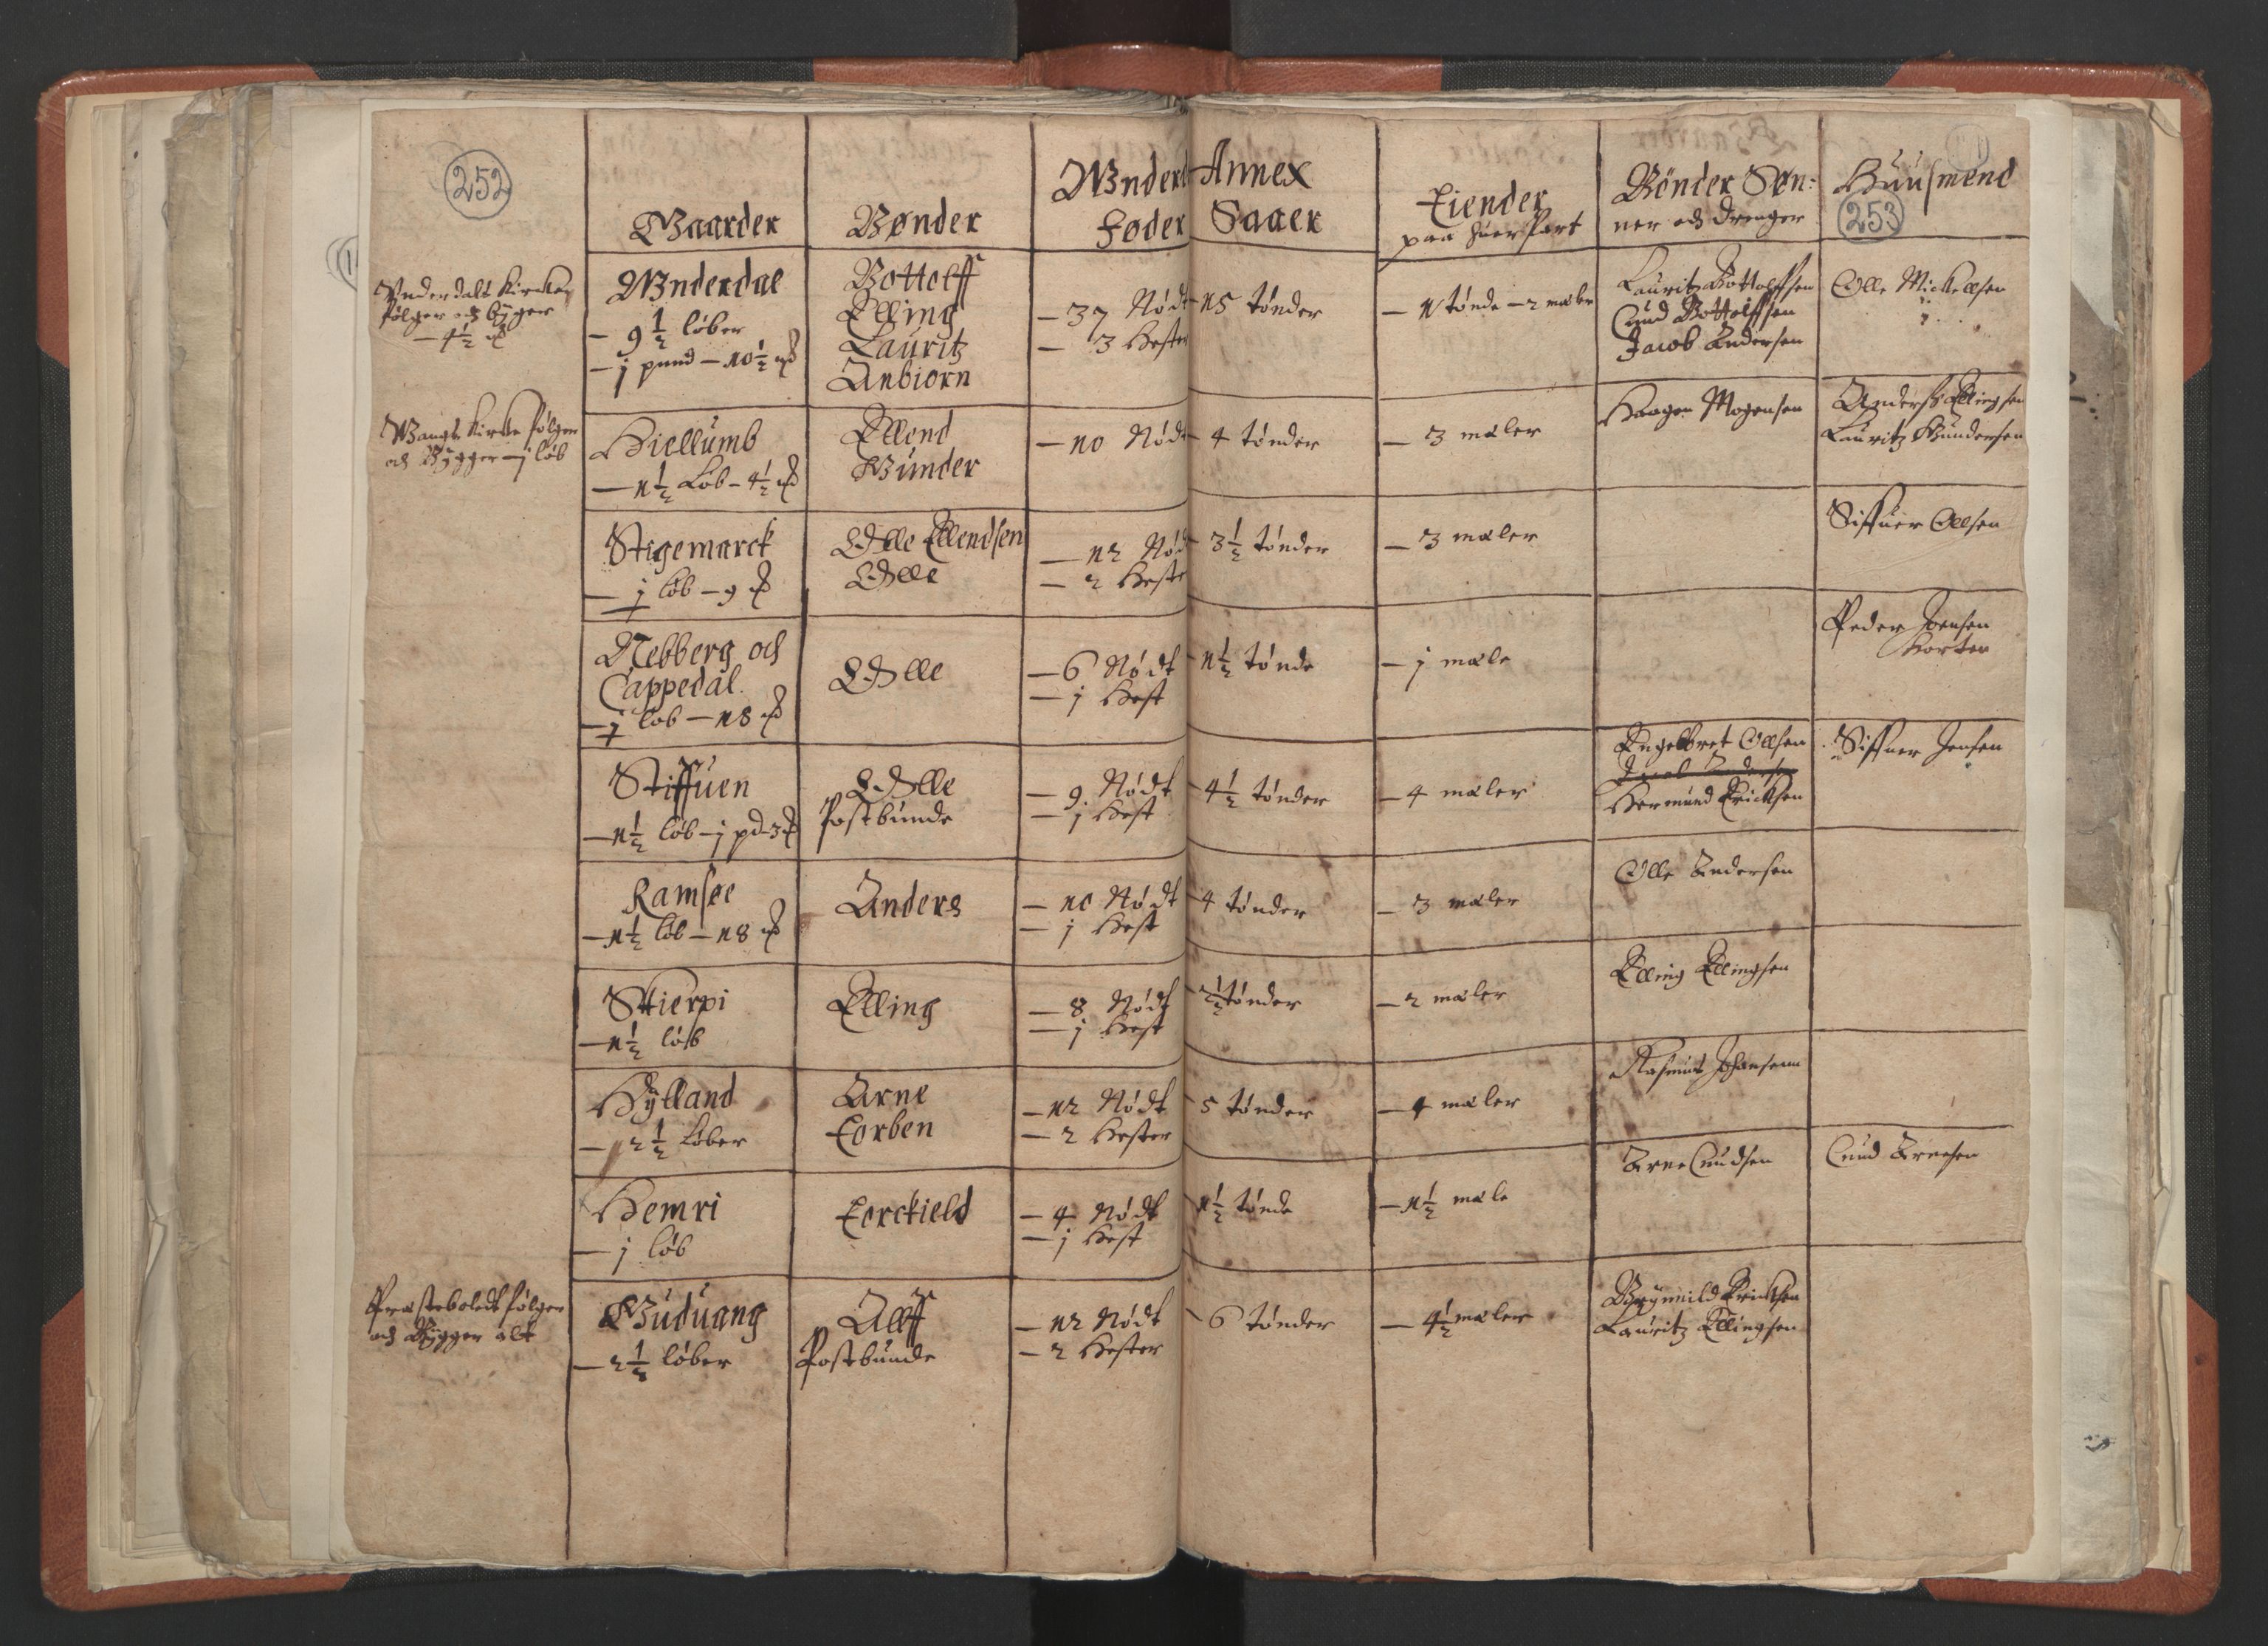 252
Gaarder
Bønder
Wnderd Annex
Føder
Saaer
Tiender
paa huer Part
Bønder Søn:
ner och drenger
Huusmend
253
Vnderdals Kircke
følger och byger
— 4½
Wnderdal
— 9½ løber
— j pund — 10½
Bottolff
Elling
Lauritz
Anbiorn
— 37 Nødt
— 3 Hester
15 tønder
— 1 tønde — 2 maler
Lauritz Bottolffsen
Cnud Bottolffsen
Jacob Andersen
Olle Mickelsen
Wangs Kircke følger
och Bygger — j løb
Hiellumb
— 1½ Løb — 4½
Ellend
Gunder
— 10 Nødt
4 tønder
— 3 maler
Haagen Mogensen
Anders Ellingsen
Lauritz Gundersen
Stigemarck
— j løb — 9
Olle Ellendsen
Olle
— 12 Nødt
— 2 Hester
3½ tønder
— 3 maler
Siffuer Ollsen
Nebberg och
Cappedal
— j løb — 18
Olle
— 6 Nødt
— j Hest
1½ tønde
— j male
Peder Joensen
Korter
Stiffuen
— 1½ løb — j pd — 3
Olle
Postbunde
— 9 Nødt
— j Hest
4½ tønder
— 4 maler
Engelbret Ollsen
Hermund Ericksen
Siffuer Jensen
Ramsøe
— 1½ løb — 18
Anders
— 10 Nødt
— j Hest
4 tønder
— 3 maler
Olle Andersen
Skierpi
— 1½ løb
Elling
— 8 Nødt
— j Hest
2½ tønder
— 2 maler
Elling Ellingsen
Hylland
— 2½ Løber
Arne
Torben
— 12 Nødt
— 2 Hester
5 tønder
— 4 maler
Rasmus Johansenn
Hemri
— j løb
Torckield
— 4 Nødt
— j Hest
1½ tønde
— 1½ male
Arne Cnudsen
Cnud Arnesen
Præstebolet følger
och Bygger alt
Guduang
— 2½ løber
Alff
Postbunde
— 12 Nødt
— 2 Hester
6 tønder
— 4½ maler
Brynnild Ericksen
Lauritz Ellingsen